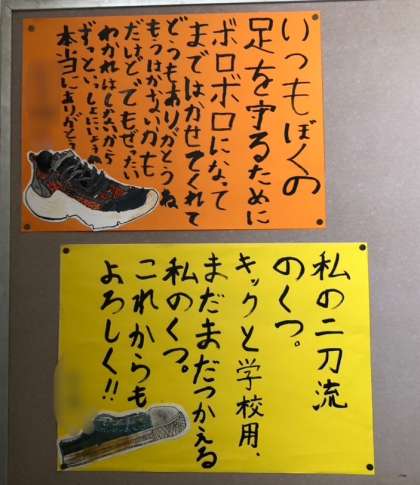 いつもぼくの
足を守るために
ボロボロになって
まではかせてくれて
どうもありがとうね、
もうはかないかも
だけど、でもぜったい
わかれはしないから
ずっといっしょに
本当にありがとう
私の二刀流
のくつ。
キックと学校用、
まだまだつかえる
私のくつ。
これからも
よろしく!!